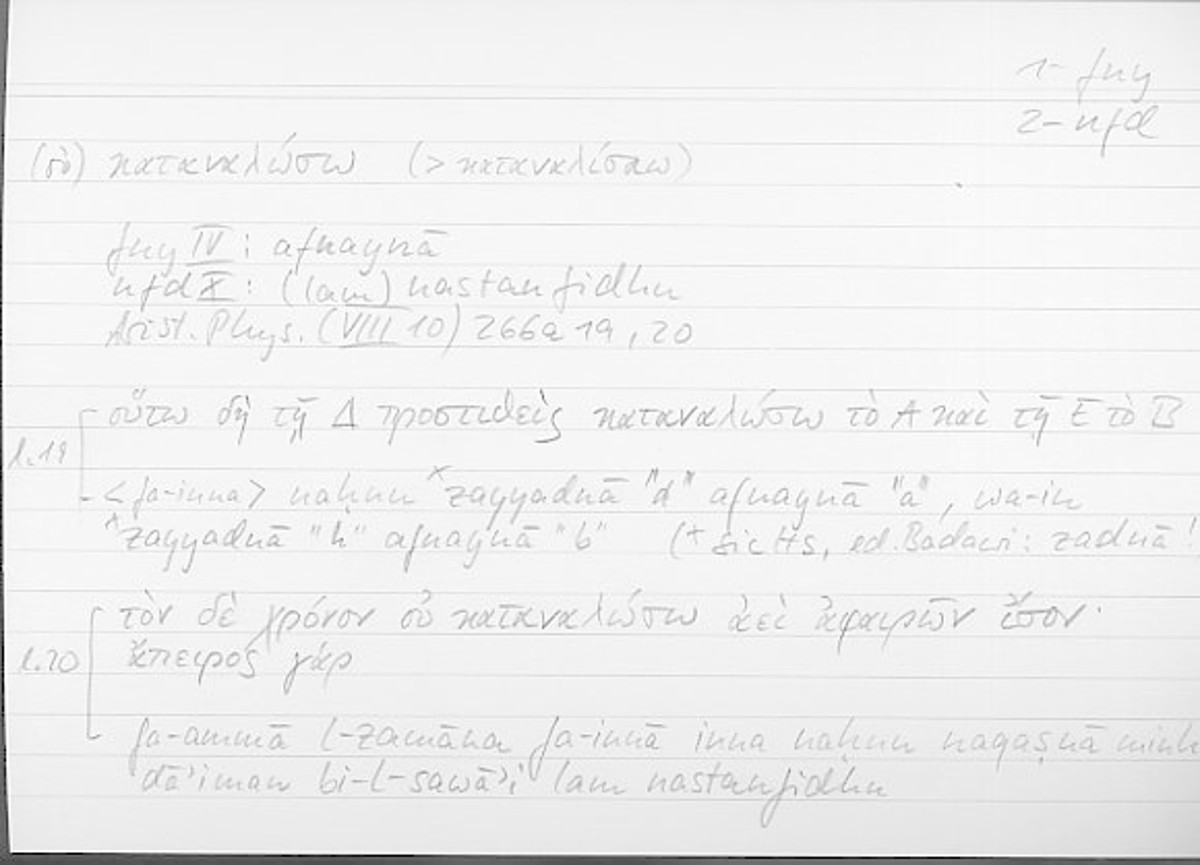 1- fny
2- nfd
(οὐ) καταναλώσω (> καταναλίσκω)
fny IV: afnaynā
nfd X: (lam) nastanfidhu
Arist. Phys. (VIII 10) 266a 19, 20
l. 19
οὕτω δὴ τῇ Δ προστιθεὶς καταναλώσω τὸ A καὶ τῇ E τὸ B
<fa-inna> naḥnu ˣzayyadnā "d" afnaynā "a", wa-in
ˣzayyadnā "h" afnaynā "b" (ˣ sic Hs, ed. Badawi: zadnā !
l. 20
τὸν δὲ χρόνον οὐ καταναλώσω ἀεὶ ἀφαιρῶν ἴσον·
ἄπειρος γάρ
fa-ammā l-zamāna fa-innā inna naḥnu naqaṣnā minh
dā'iman bi-l-sawā'i lam nastanfidhu